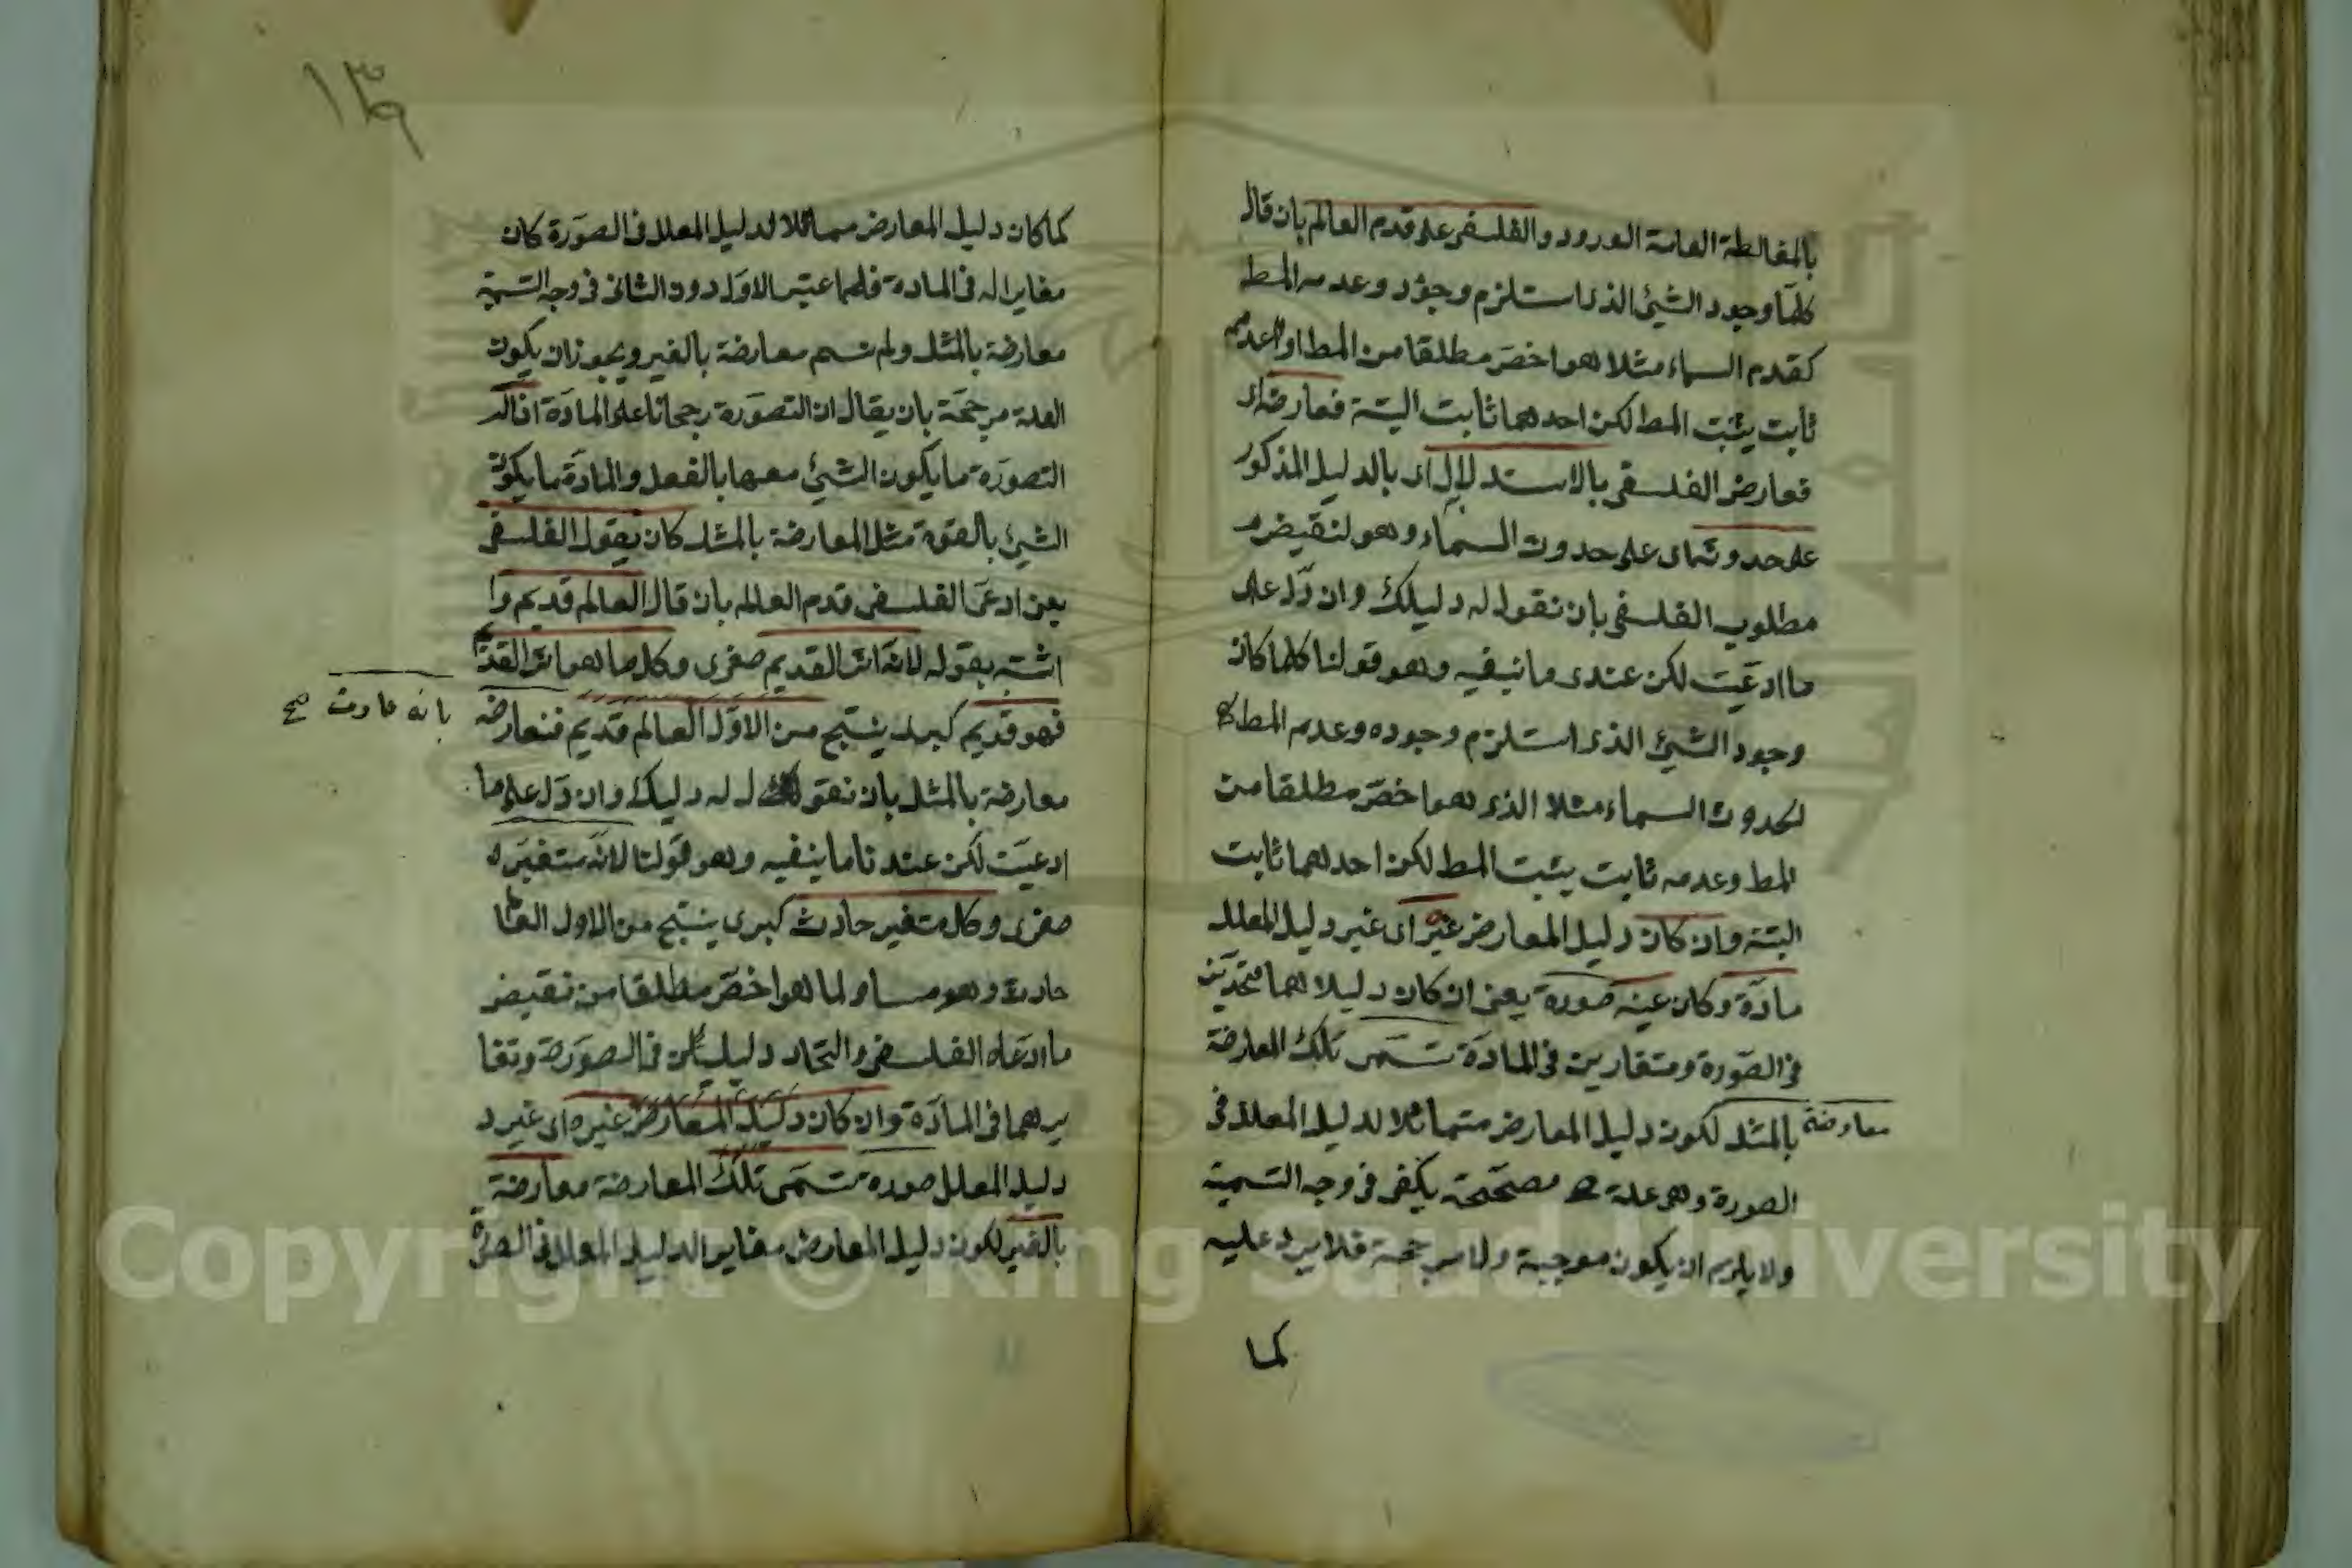 بالمغالطة العامة الورود والفلسفى على قدم العالم بان قال
كلما وجود الشيئ الذى استلزم وجود وعدمه المط
كقدم السماء مثلا هو اخص مطلقا من المط او عدمه
ثابت يثبت المط لكن احدهما ثابت البتة فعارضه اى
فعارض الفلسفى بالاستدلال اى بالدليل المذكور
على حدوثها اى على حدوث السماء وهو لنقيض
مطلوب الفلسفى بان نقول له دليلك وان دل على
ما ادعيت لكن عندى ما ينفيه وهو قولنا كلما كان
وجود الشيئ الذى استلزم وجوده وعدم المط
لحدوث السماء مثلا الذى هو اخص مطلقا من
المط وعدمه ثابت يثبت المط لكن احدهما ثابت
البتة وان كان دليل المعارض غير اى غير دليل المعلل
مادة وكان عينه صورة يعنى ان كان دليلاهما متحدين
فى الصورة ومتغايرين فى المادة تسمى تلك المعارضة
معارضة
بالمثل لكون دليل المعارض متماثلا لدليل المعلل فى
الصورة وهو علة مصححة يكفى فى وجه التسمية
ولا يلزم ان يكون موجبة ولا مرجحة فلا يرد عليه
كما
١٣٩
كما كان دليل المعارض مماثلا لدليل المعلل فى الصورة كان
مغايرا له فى المادة فلما عتبر الاول دون الثانى فى وجه التسمية
معارضة بالمثل ولم تسم معارضة بالغير ويجوز ان يكون
العلة مرجحة بان يقال ان التصورة رجحانا على المادة اذ
التصورة ما يكون الشيئ معها بالفعل والمادة ما يكون
الشيئ بالقوة مثل المعارضة بالمثل كان يقول الفلسفى
يعنى ادعى الفلسفى قدم العالم بان قال العالم قديم وا
اثبته بقوله لانه اثر القديم صغرى وكل ما هو اثر القديم
فهو قديم كبرى ينتج من الاول العالم قديم فنعارضه
بانه حادث صح
معارضة بالمثل بان نقول له دليلك وان دل على ما
ادعيت لكن عندنا ما ينفيه وهو قولنا لانه متغير
صغرى وكل متغير حادث كبرى ينتج من الاول العالم
حادث وهو مساو لما هو اخص مطلقا من نقيض
ما ادعاه الفلسفى والتحاد دليلين فى الصورة وتغا
يرهما فى المادة وان كان دليل المعارض غيره اى غير د
دليل المعلل صورة تسمى تلك المعارضة معارضة
بالغير لكون دليل المعارض مغايرا لدليل المعلل فى الصورة
Copyright © King Saud University